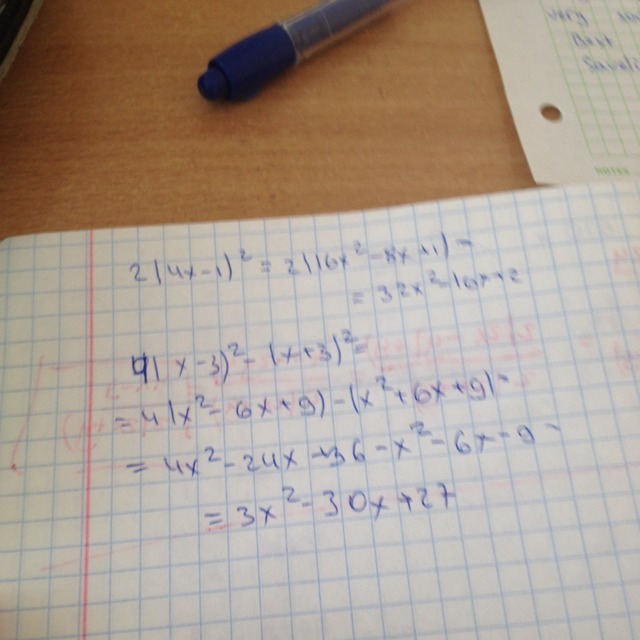 very
Best
2(4x-1)² = 2(16x²-8x+1) =
= 32x²-16x+2
4(x-3)² - (x+3)² =
= 4(x²-6x+9)-(x²+6x+9) =
= 4x²-24x+36-x²-6x-9 =
= 3x²-30x+27